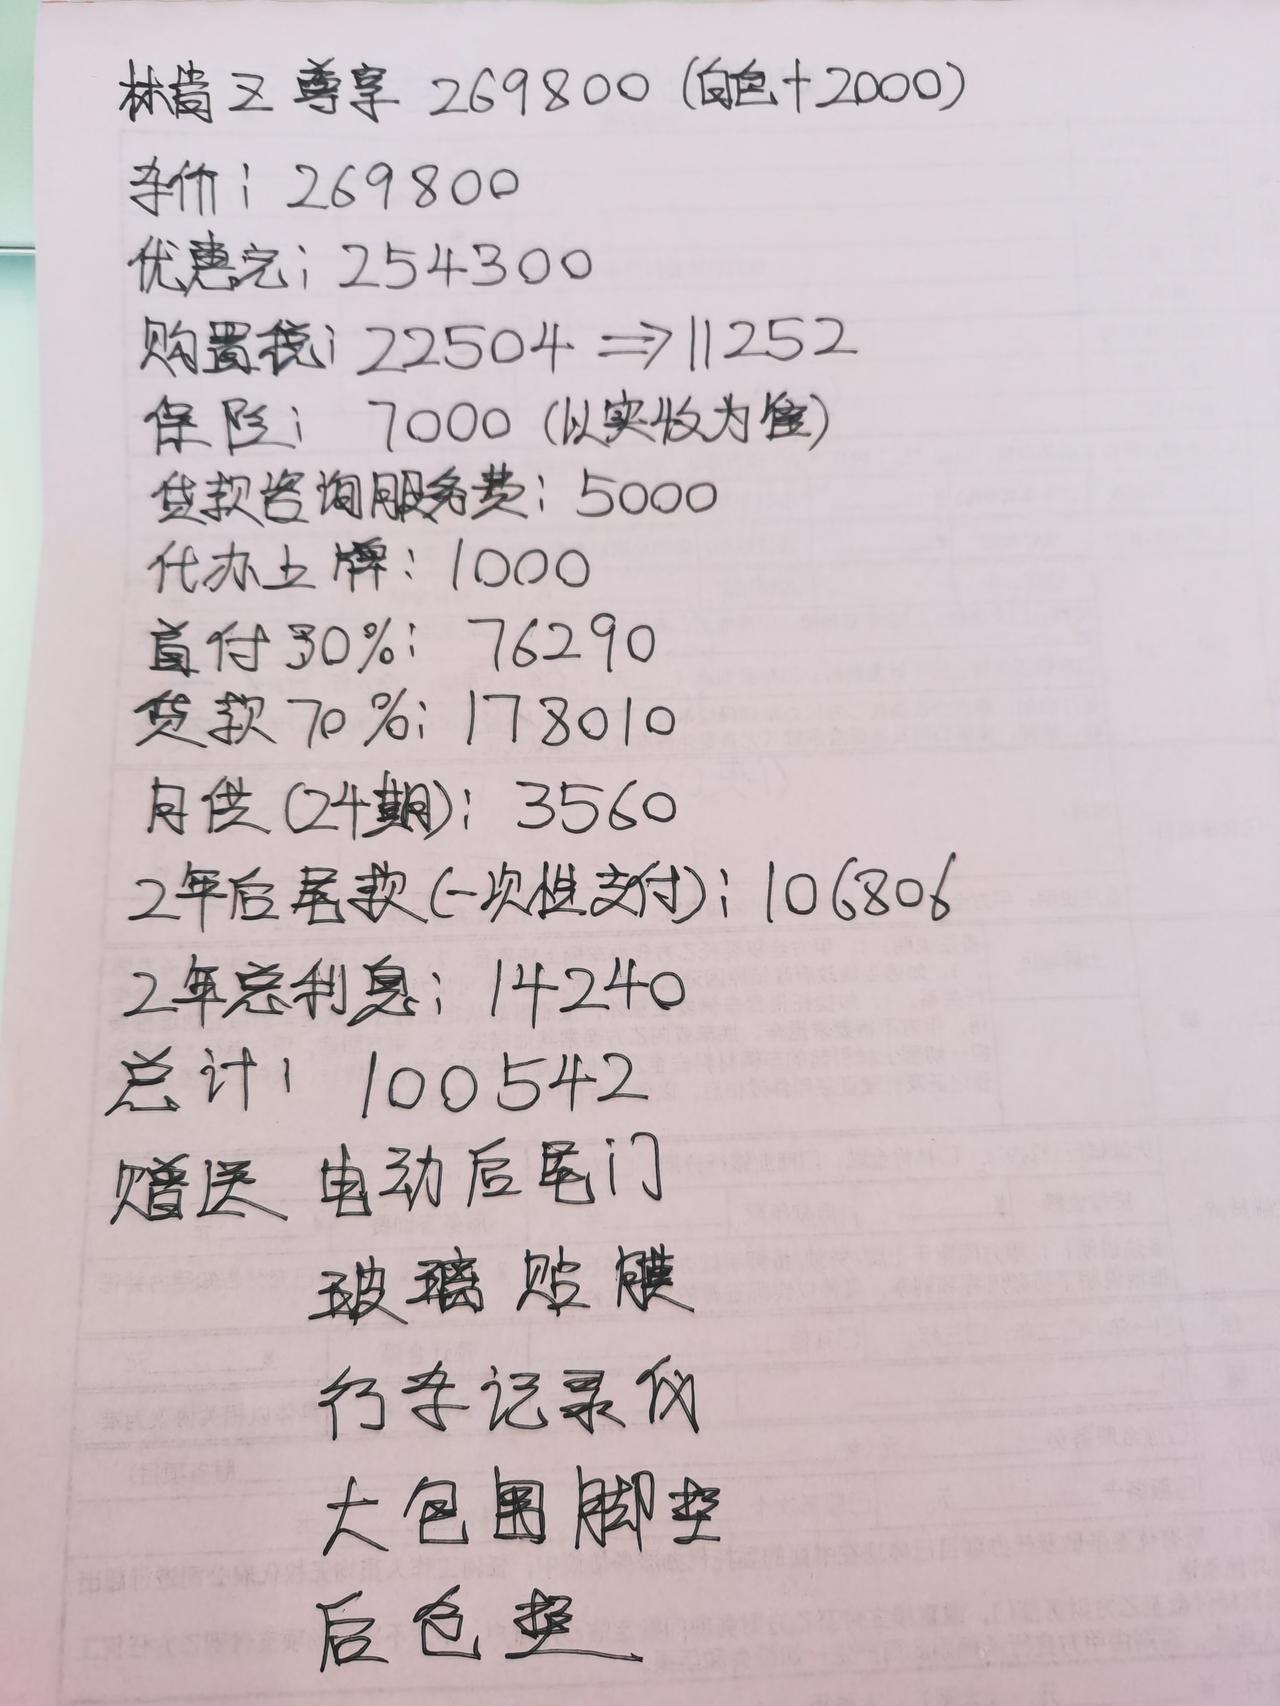 林肯Z 尊享 269800 (白色+2000)
车价: 269800
优惠完: 254300
购置税: 22504 ⇒ 11252
保险: 7000 (以实收为准)
贷款咨询服务费: 5000
代办上牌: 1000
首付30%: 76290
贷款70%: 178010
月供(24期): 3560
2年后尾款(一次性支付): 106806
2年总利息: 14240
总计: 100542
赠送 电动后尾门
玻璃贴膜
行车记录仪
大包围脚垫
后仓垫